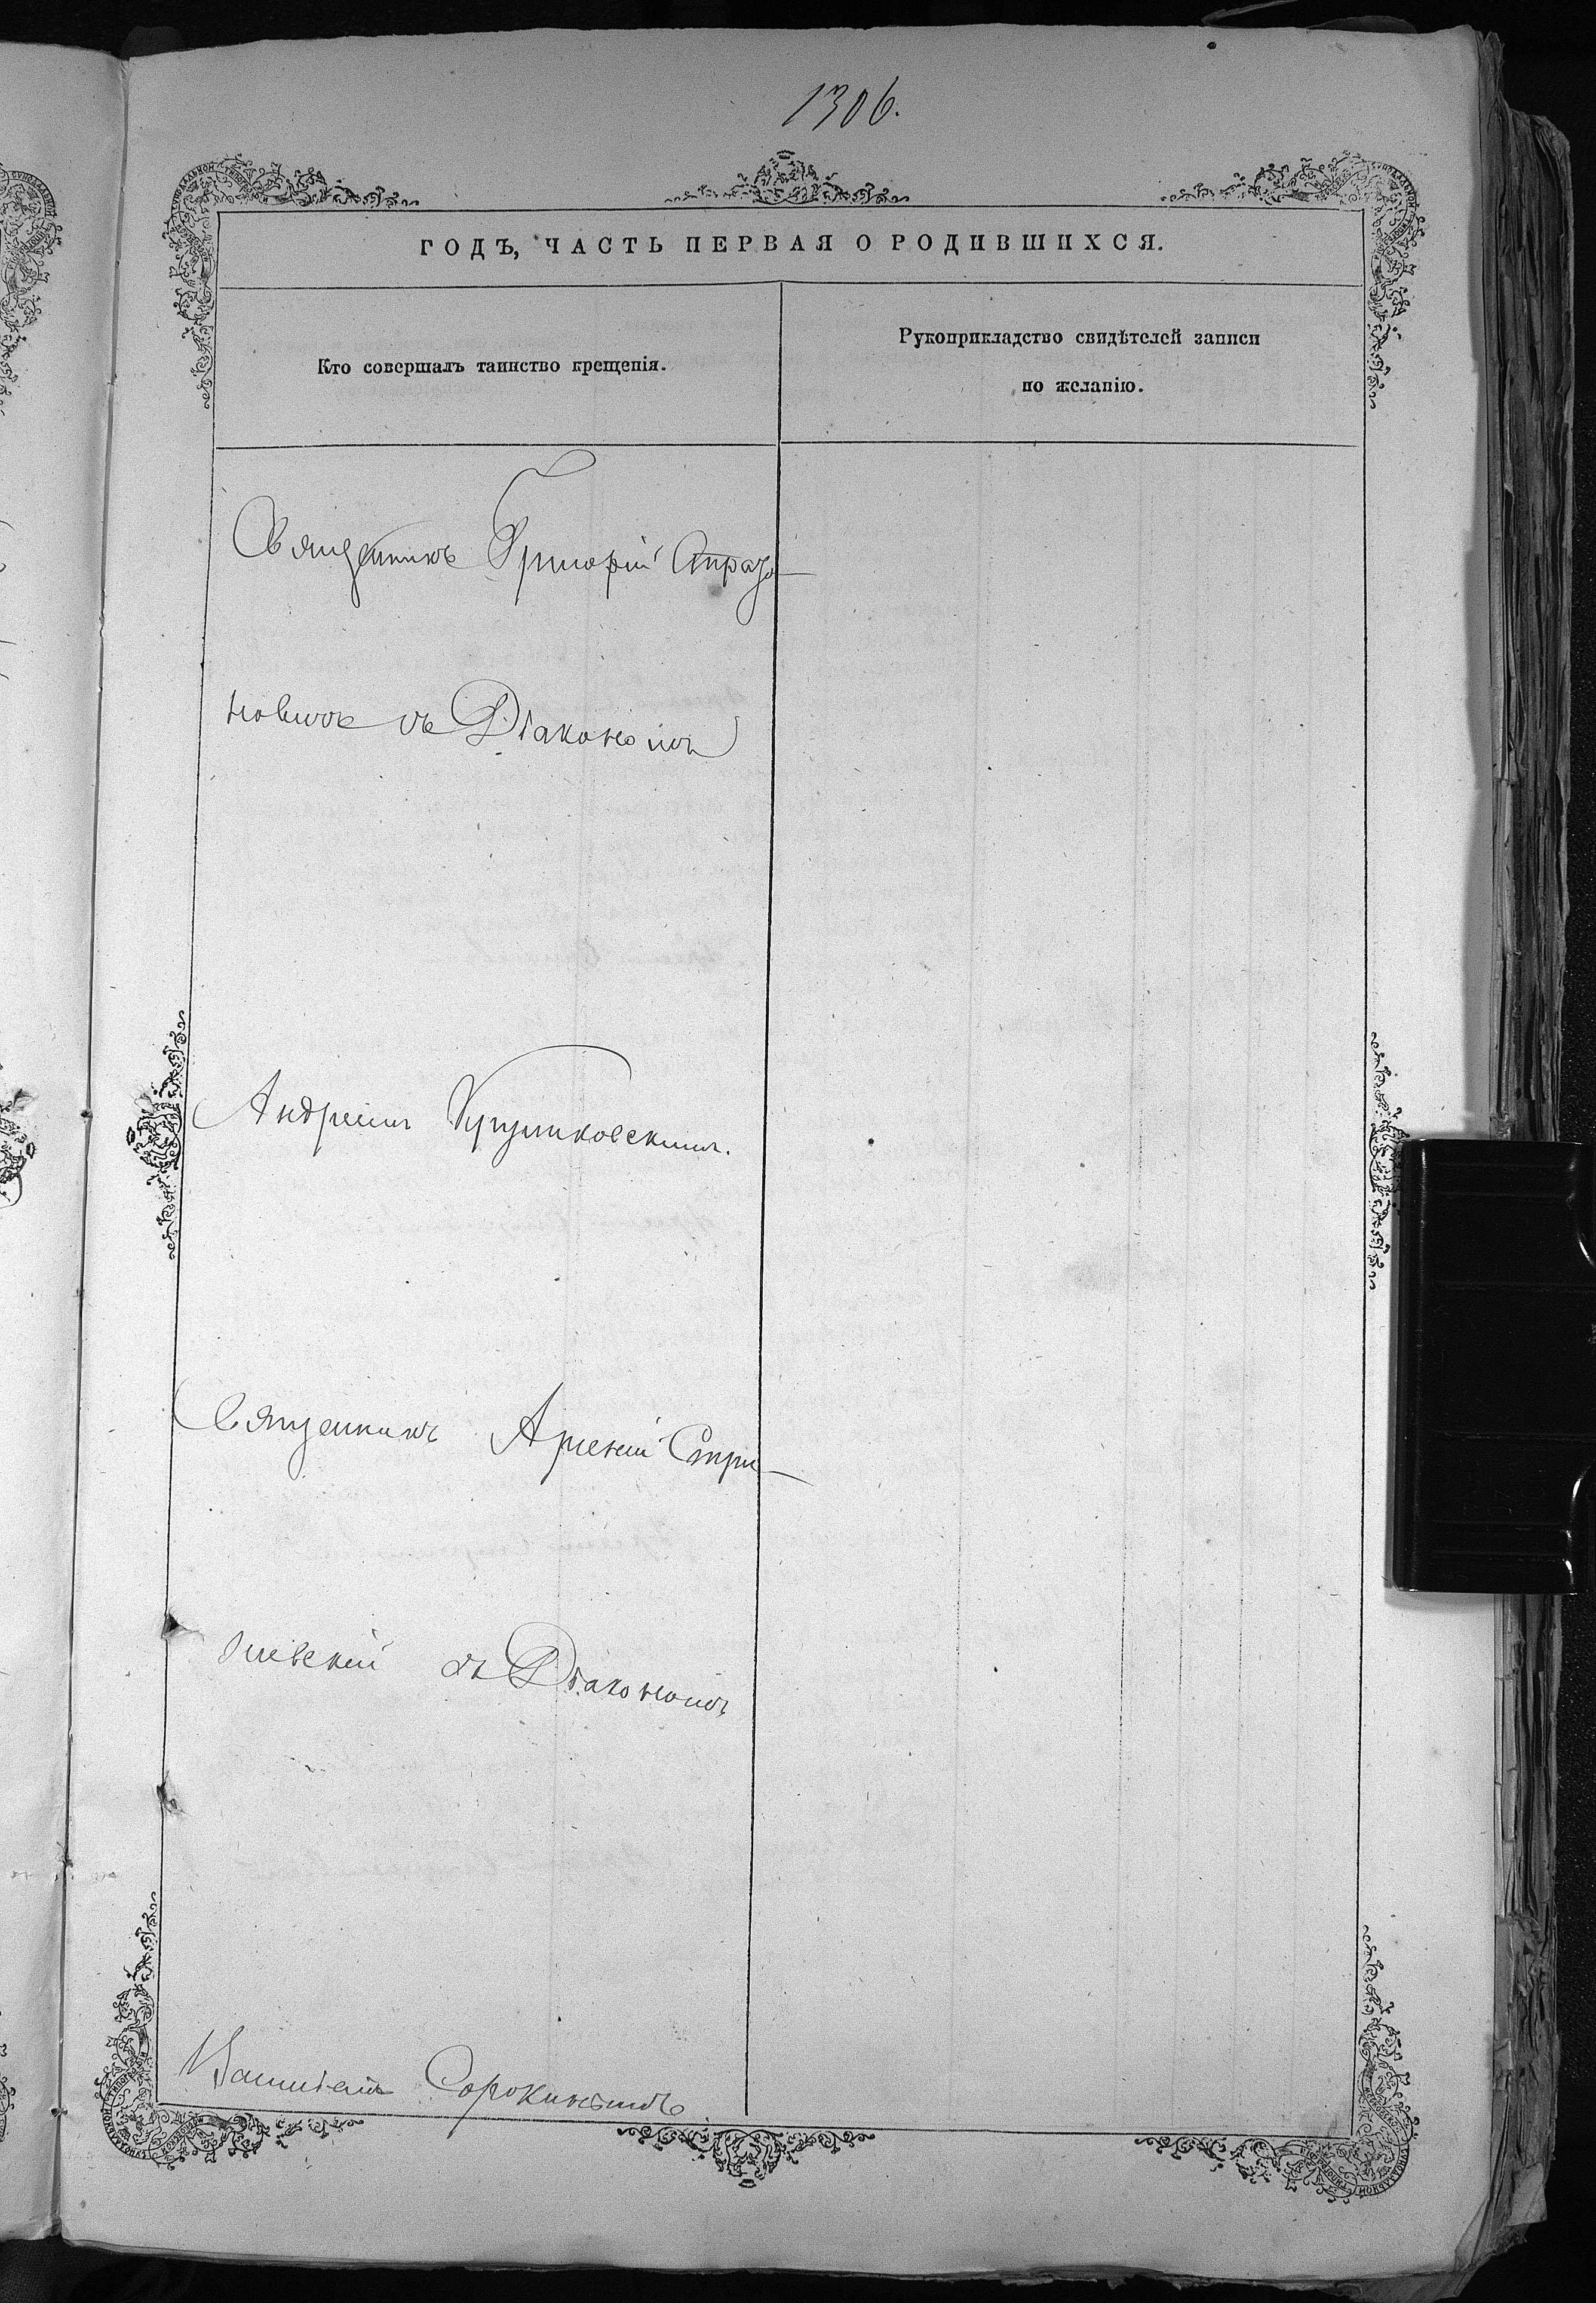 1306.
ГОДЪ, ЧАСТЬ ПЕРВАЯ О РОДИВШИХСЯ.
Кто совершалъ таинство крещенія.
Рукоприкладство свидѣтелей записи
по желанію.
Священникъ Григорій
съ Діакономъ
Андреемъ
Священникъ Арсеній Стри-
жевскій съ Діакономъ
Василіемъ Сорокинымъ